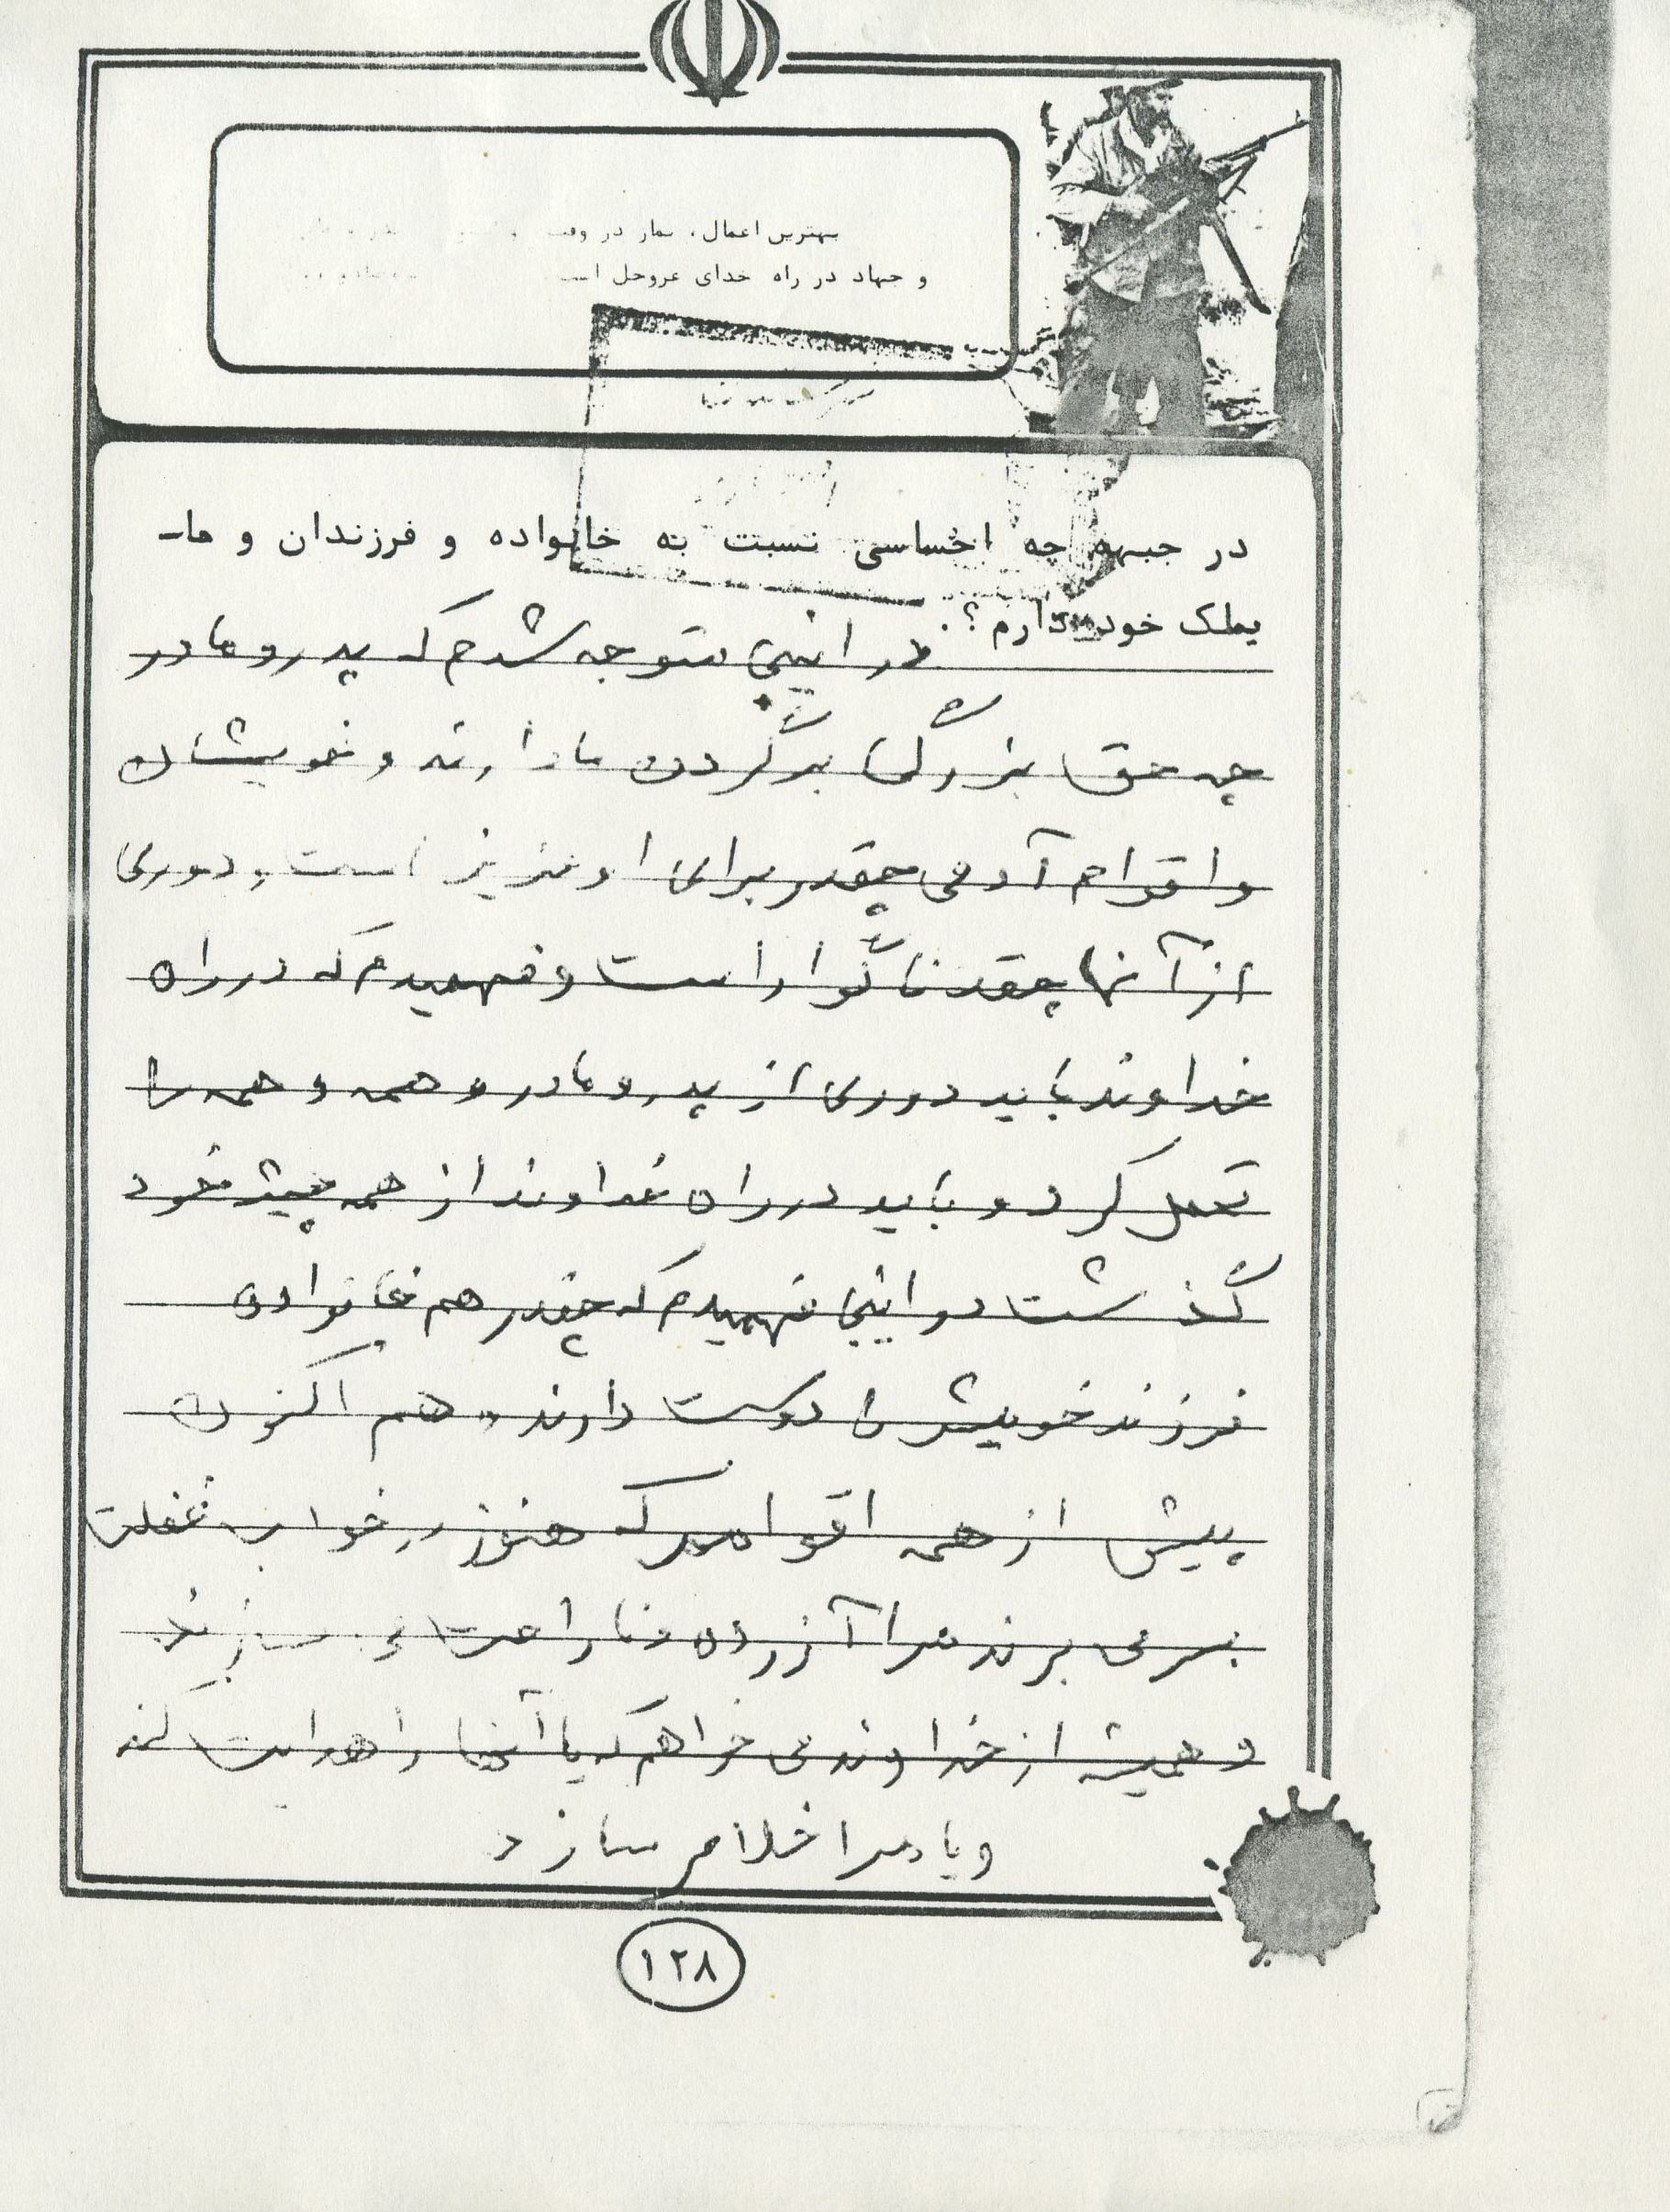 بهترین اعمال، نماز در وقت
و جهاد در راه خدای عزوجل است
در جبهه چه احساسی نسبت به خانواده و فرزندان و ما-
یملک خود دارم ؟
در اینجا متوجه شدم که پدر و مادر
چه حق بزرگی بر گردن ما دارند و خویشان
و اقوام آدمی چقدر برای او عزیز است و دوری
از آنها چقدر ناگوار است و فهمیدم که در راه
خداوند باید دوری از پدر و مادر و همه و همه را
تحمل کرد و باید در راه خداوند از همه چیز خود
گذشت در اینجا فهمیدم که چقدر هم خانواده
فرزند خویش را دوست دارند و هم اکنون
بیش از همه اقوامم که هنوز در خواب غفلت
بسر می برند مرا آزرده و ناراحت می سازند
و همیشه از خداوند می خواهم که یا آنها را هدایت کند
و یا مرا خلاص سازد
۱۲۸